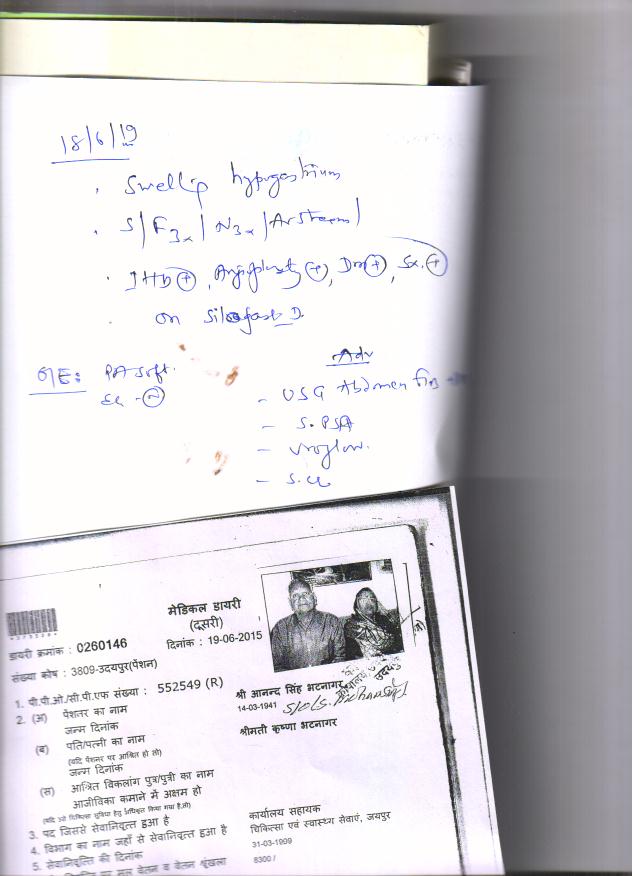 18/6/19
. Swelling hypogastrium
. S/F3x/N3x/
. IHD +, Angioplasty +, Dm +, Sx. +
on Silofast D.
O/E: PA Soft.
Adv
- USG Abdomen
- S. PSA
- Uroflow.
- S. Cr
मेडिकल डायरी
(दूसरी)
डायरी क्रमांक : 0260146
दिनांक : 19-06-2015
संख्या कोष : 3809-उदयपुर(पेंशन)
1. पी.पी.ओ./सी.पी.एफ संख्या : 552549 (R)
2. (अ) पेंशनर का नाम
श्री आनन्द सिंह भटनागर
जन्म दिनांक
14-03-1941
(ब) पति/पत्नी का नाम
श्रीमती कृष्णा भटनागर
(यदि पेंशनर पर आश्रित हो तो)
जन्म दिनांक
(स) आश्रित विकलांग पुत्र/पुत्री का नाम
आजीविका कमाने में अक्षम हो
3. पद जिससे सेवानिवृत्त हुआ है
कार्यालय सहायक
4. विभाग का नाम जहाँ से सेवानिवृत्त हुआ है
चिकित्सा एवं स्वास्थ्य सेवाएं, जयपुर
5. सेवानिवृत्ति की दिनांक
31-03-1909
व वेतन श्रृंखला
8300 /